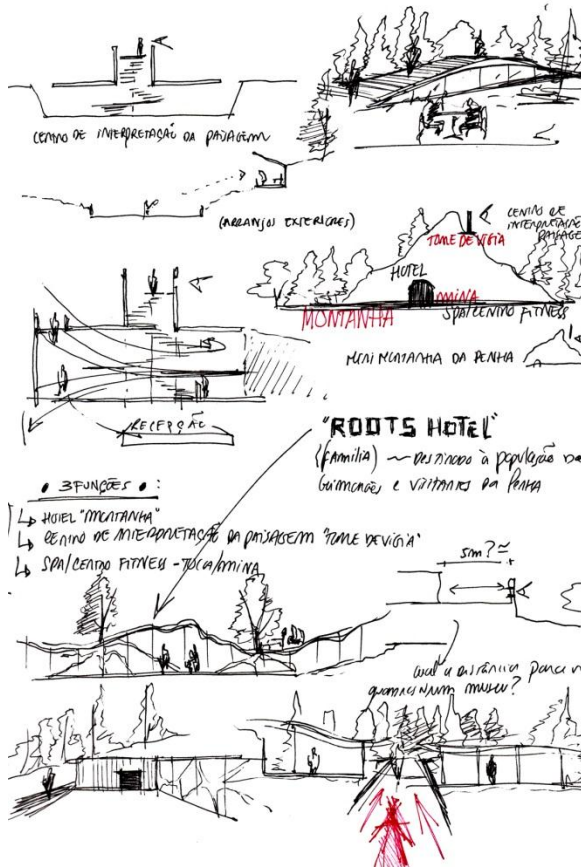 CENTRO DE INTERPRETAÇÃO DA PAISAGEM
(ARRANJOS EXTERIORES)
CENTRO DE
INTERPRETAÇÃO
PAISAGE
TORRE DE VIGIA
HOTEL
MINA
MONTANHA
SPA/CENTRO FITNESS
MINI MONTANHA DA PENHA
RECEPÇÃO
"ROOTS HOTEL"
(família) ~ DESTINADO à população de
Guimarães e visitantes da Penha
• 3 FUNÇÕES • :
↳ HOTEL "MONTANHA"
↳ CENTRO DE INTERPRETAÇÃO DA PAISAGEM "TORRE DE VIGIA"
↳ SPA/CENTRO FITNESS - TOCA/MINA
5m? ≃
Qual a distância para
quadros num museu?